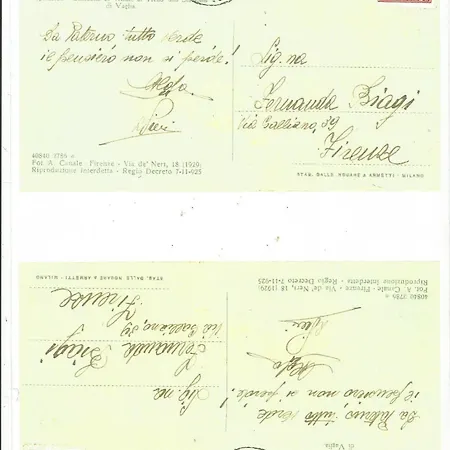 di Vaglia
La Paterno tutto verde
il pensiero non si perde!
Sig.na
Fernanda Biagi
Via Galliano, 39
Firenze
40840 3785 e
Fot. A. Canale - Firenze - Via de' Neri, 18 (1929)
Riproduzione interdetta - Regio Decreto 7-11-925
STAB. DALLE NOGARE & ARMETTI - MILANO
STAB. DALLE NOGARE & ARMETTI - MILANO
Firenze
Via Galliano, 39
Fernanda Biagi
Sig.na
40840 3785 e
Fot. A. Canale - Firenze - Via de' Neri, 18 (1929)
Riproduzione interdetta - Regio Decreto 7-11-925
La Paterno tutto verde
il pensiero non si perde!
di Vaglia